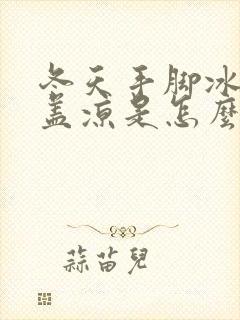 冬天手脚冰
盖凉是怎麼
蒜苗兒